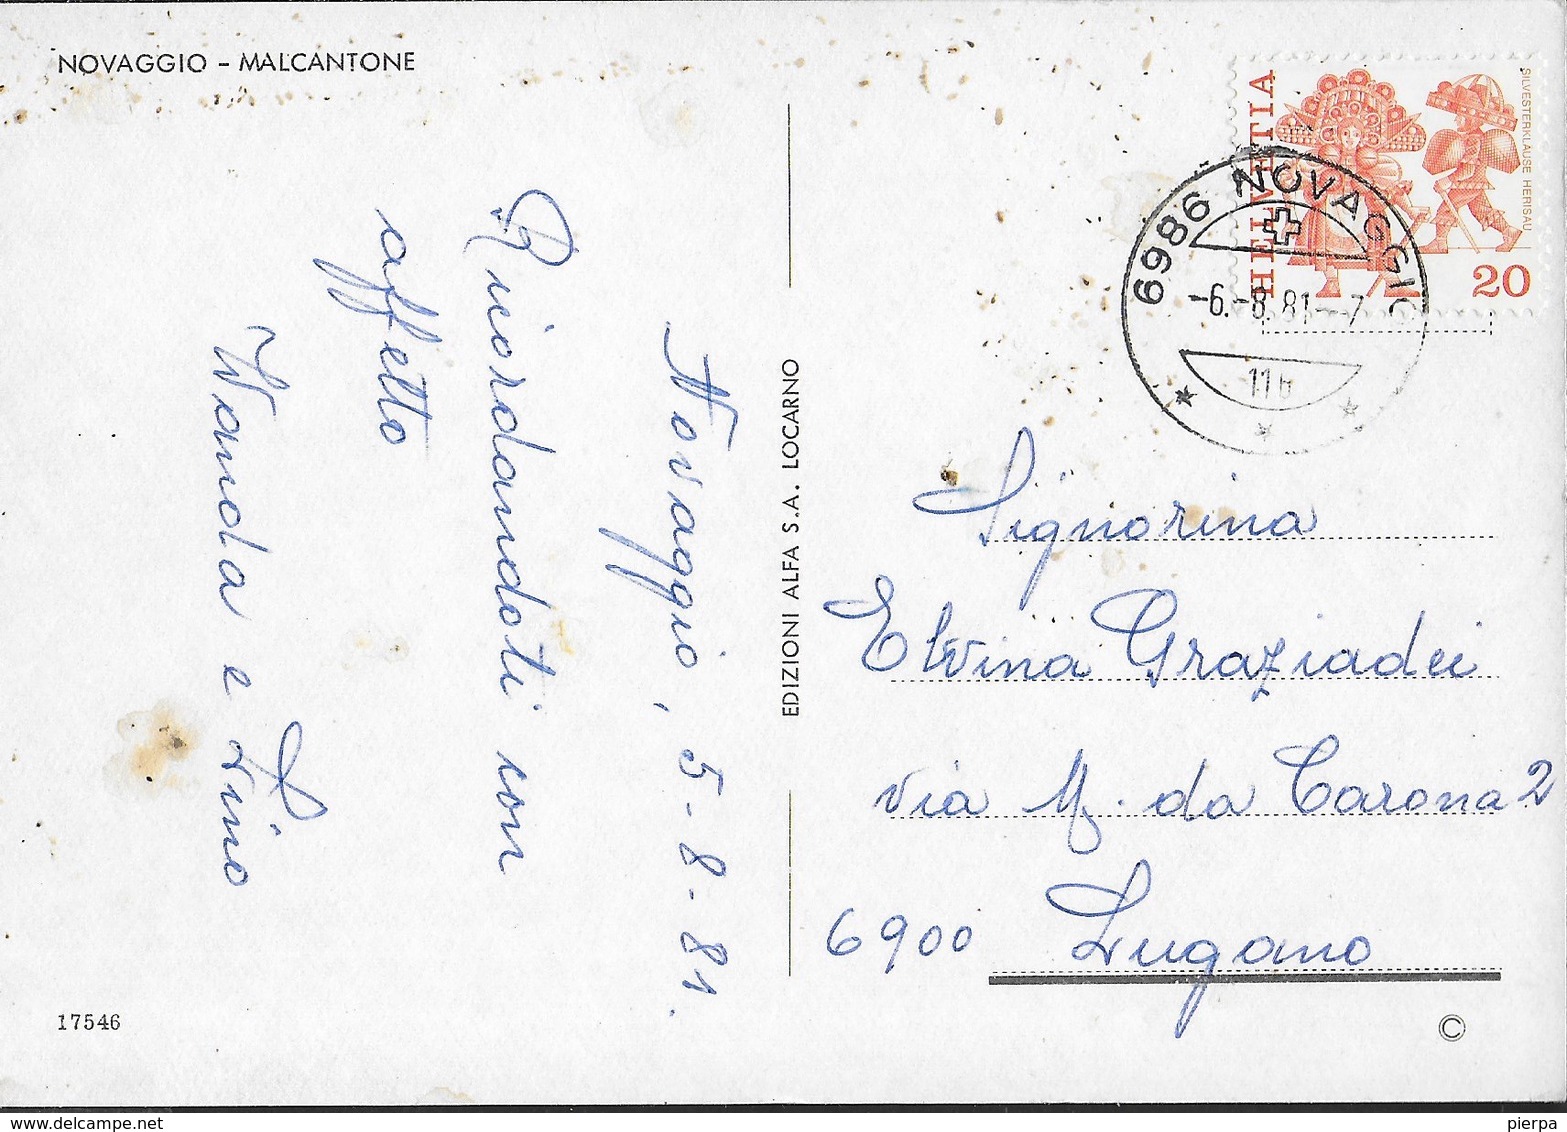 NOVAGGIO – MALCANTONE
Novaggio, 5-8-81.
Ricordandoti con
affetto
Wanda e Lino
EDIZIONI ALFA S.A. LOCARNO
HELVETIA
SILVESTERKLAUSE HERISAU
20
6986 NOVAGGIO
-6.-8.81--7
11b
Signorina
Elvina Graziadei
via M. da Carona 2
6900 Lugano
17546
©
www.delcampe.net
pierpa